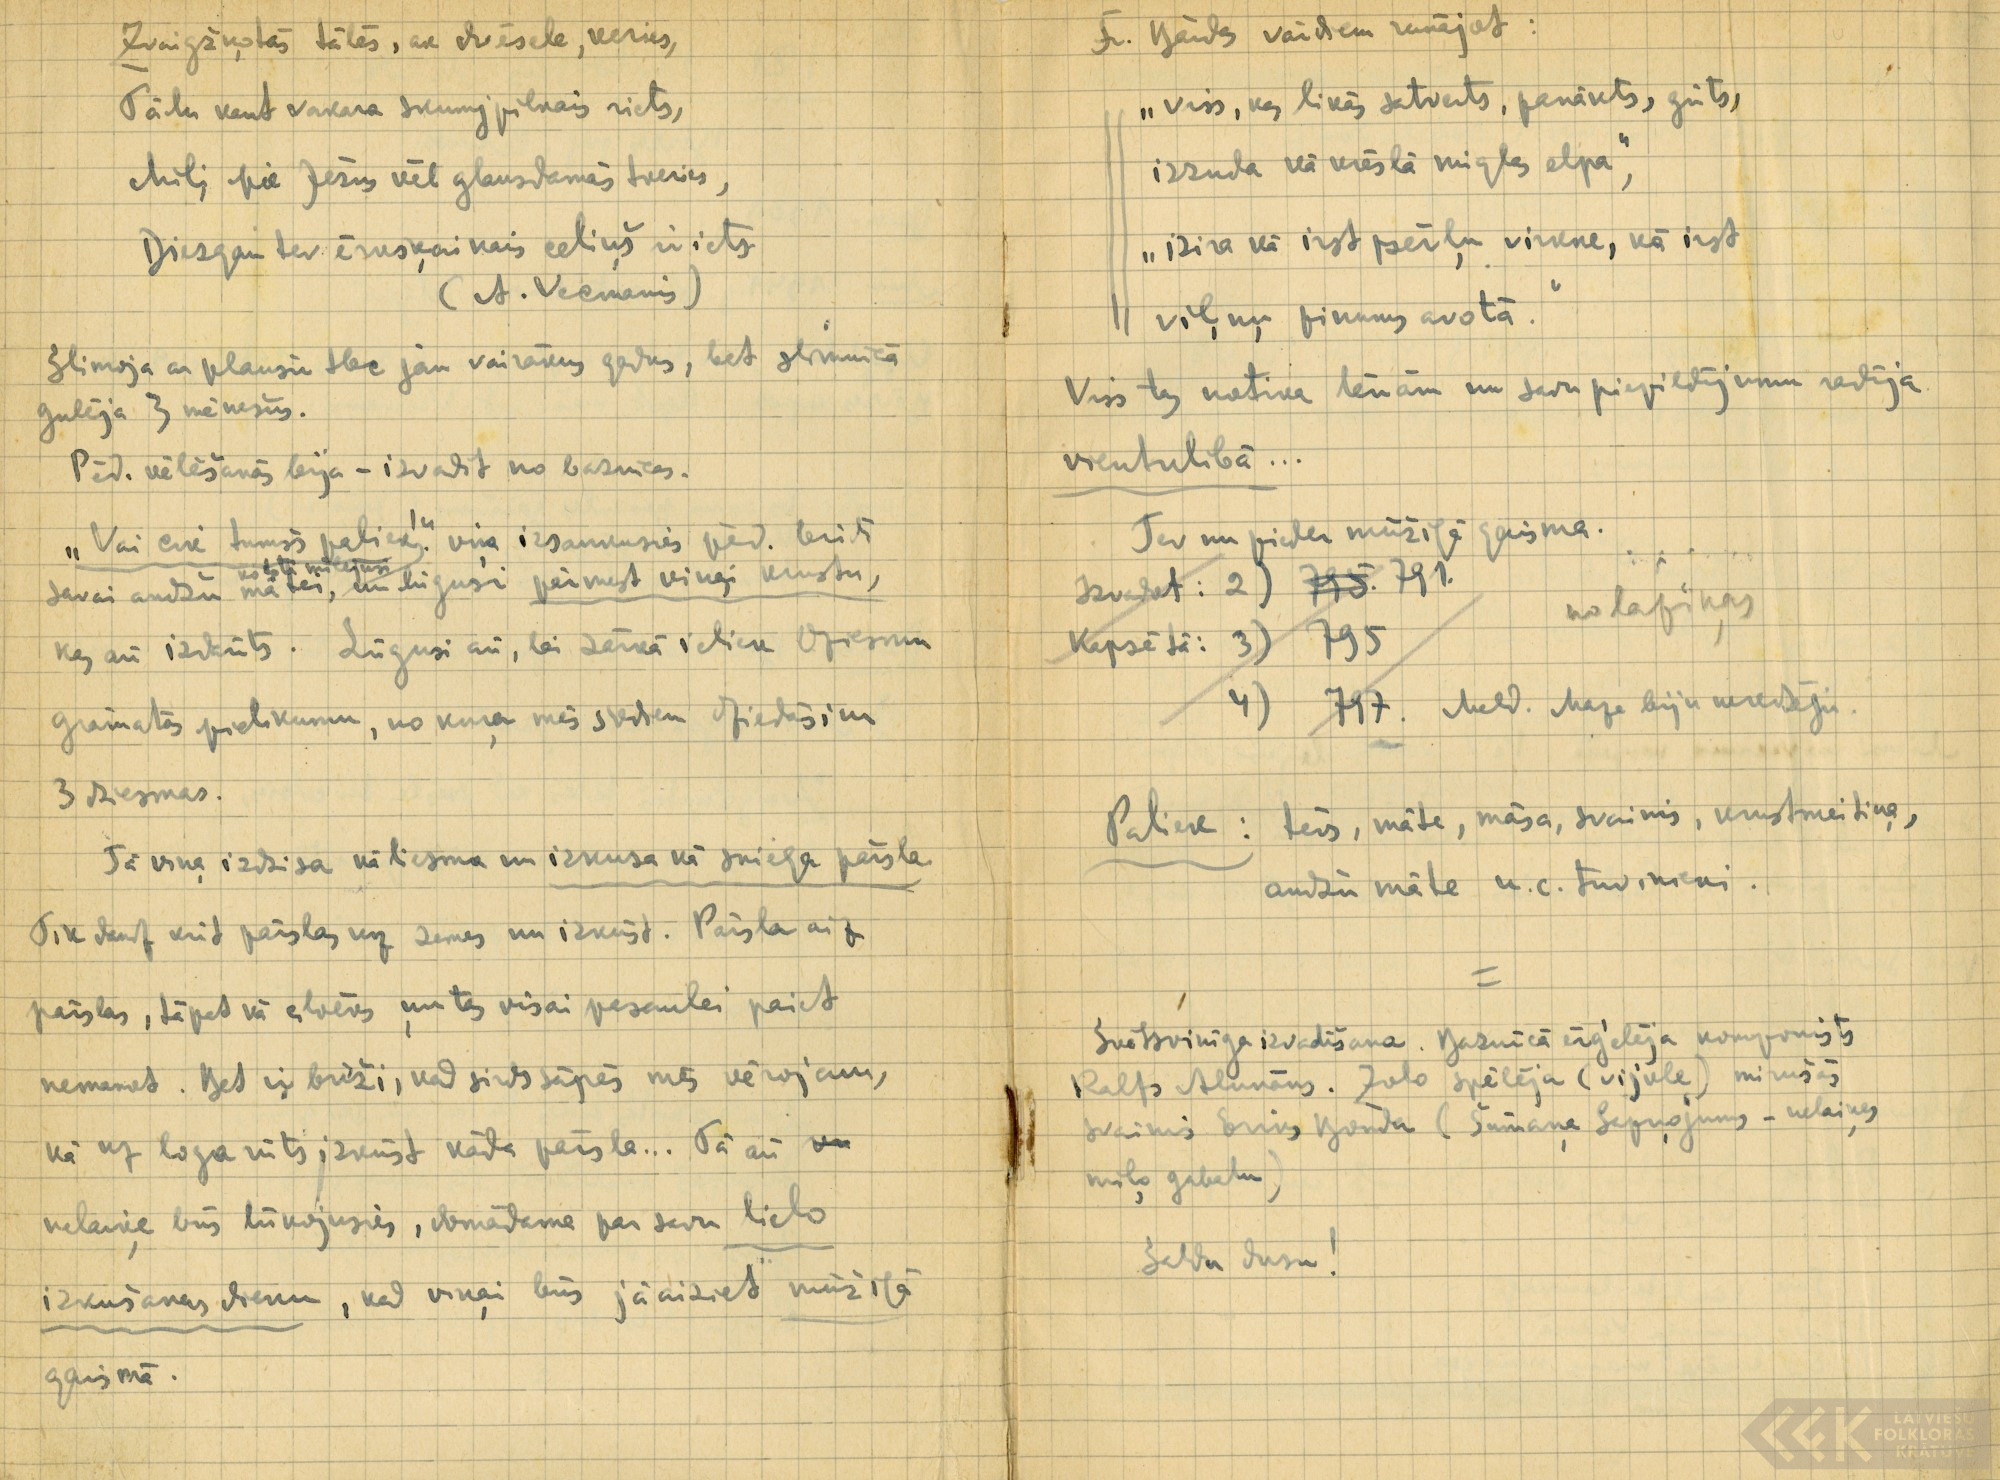 Zvaigžņotās tālēs, ak dvēsele, veries,
Tālu kaut vakara skumjpilnais riets,
Mīļi pie Jēzus vēl glausdamās tveries,
Diezgan tev ērkšķainais celiņš ir iets
(A. Vecmanis)
Slimoja ar plaušu tbc jau vairākus gadus, bet slimnīcā
gulēja 3 mēnešus.
Pēd. vēlēšanās bija – izvadīt no baznīcas.
„Vai cik tumšs paliek!" viņa izsaukusies pēd. brīdī
savai audžu mātei, un lūgusi pārmest viņai krustu,
kas arī izdarīts. Lūgusi arī, lai zārkā ieliek Dziesmu
grāmatas pielikumu, no kura mēs šodien dziedāsim
3 dziesmas.
Tā viņa izdzisa kā liesma un izkusa kā sniega pārsla.
Tik daudz krīt pārslas uz zemes un izkūst. Pārsla aiz
pārslas, tāpat kā cilvēks un tas visai pasaulei paiet
nemanot. Bet ir brīži, kad sirds sāpēs mēs vērojam,
kā uz loga rūts izkūst kāda pārsla... Tā arī
nelaiķe būs lūkojusies, domādama par savu lielo
izkušanas dienu, kad viņai būs jāaiziet mūžīgā
gaismā.
Fr. Bārdas vārdiem runājot:
„Viss, kas likās satverts, panākts, gūts,
izzuda kā krēslā miglas elpa",
„izira kā irst pērļu virkne, kā irst
viļņu pinums avotā."
Viss tas notika lēnām un savu piepildījumu radīja
vientulībā...
Tev nu pieder mūžīgā gaisma.
Izvadot: 2) 795. 791.
no lapiņas
Kapsētā: 3) 795
4) 797. Meld. Maza biju neredzēju.
Paliek: tēvs, māte, māsa, svainis, krustmeitiņa,
audžu māte u.c. tuvinieki.
=
Svētsvinīga izvadīšana. Baznīcā ērģelēja komponists
Ralfs Alunāns. Zolo spēlēja (vijole) mirušās
svainis Ēriks Bonda (Šūmaņa Sapņojums – nelaiķes
mīļo gabalu)
Saldu dusu!
LATVIEŠU
FOLKLORAS
KRĀTUVE